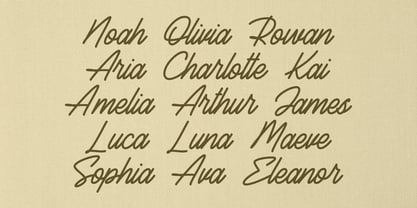 Noah Olivia Rowan
Aria Charlotte Kai
Amelia Arthur James
Luca Luna Maeve
Sophia Ava Eleanor